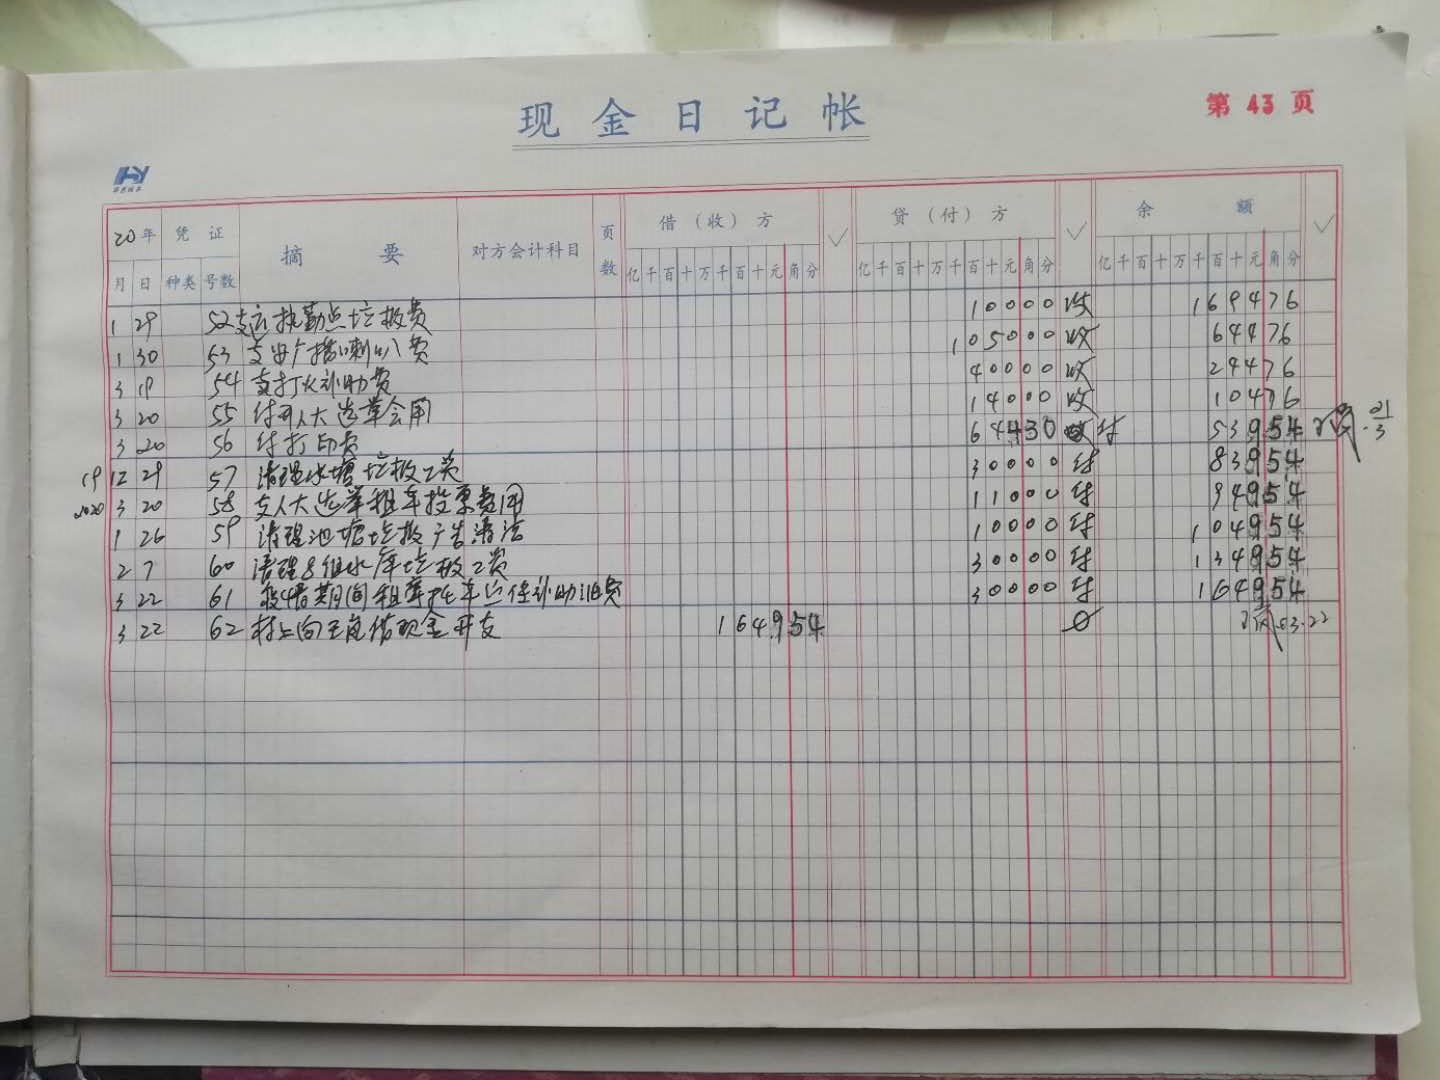 现金日记帐
第 43 页
20年 凭证 摘要 对方会计科目 页数 借（收）方 ✓ 贷（付）方 ✓ 余额 ✓
月 日 种类 号数 亿千百十万千百十元角分 亿千百十万千百十元角分 亿千百十万千百十元角分
1 29 52 支 执勤点垃圾费 10000 收 169476
1 30 53 支 广播喇叭费 105000 收 64476
3 19 54 支打火补助费 40000 收 24476
3 20 55 付 人大选举会用 14000 收 10476
3 20 56 付打印费 64430 付 53954
21/3
19 12 29 57 清理水塘垃圾工资 30000 付 83954
2020 3 20 58 支人大选举租车投票费用 11000 付 94954
1 26 59 清理池塘垃圾广告清洁 10000 付 104954
2 7 60 清理8组水库垃圾工资 30000 付 134954
3 22 61 疫情期间租车 补助油费 30000 付 164954
3 22 62 村上向王 借现金开支 164954 0
03.22